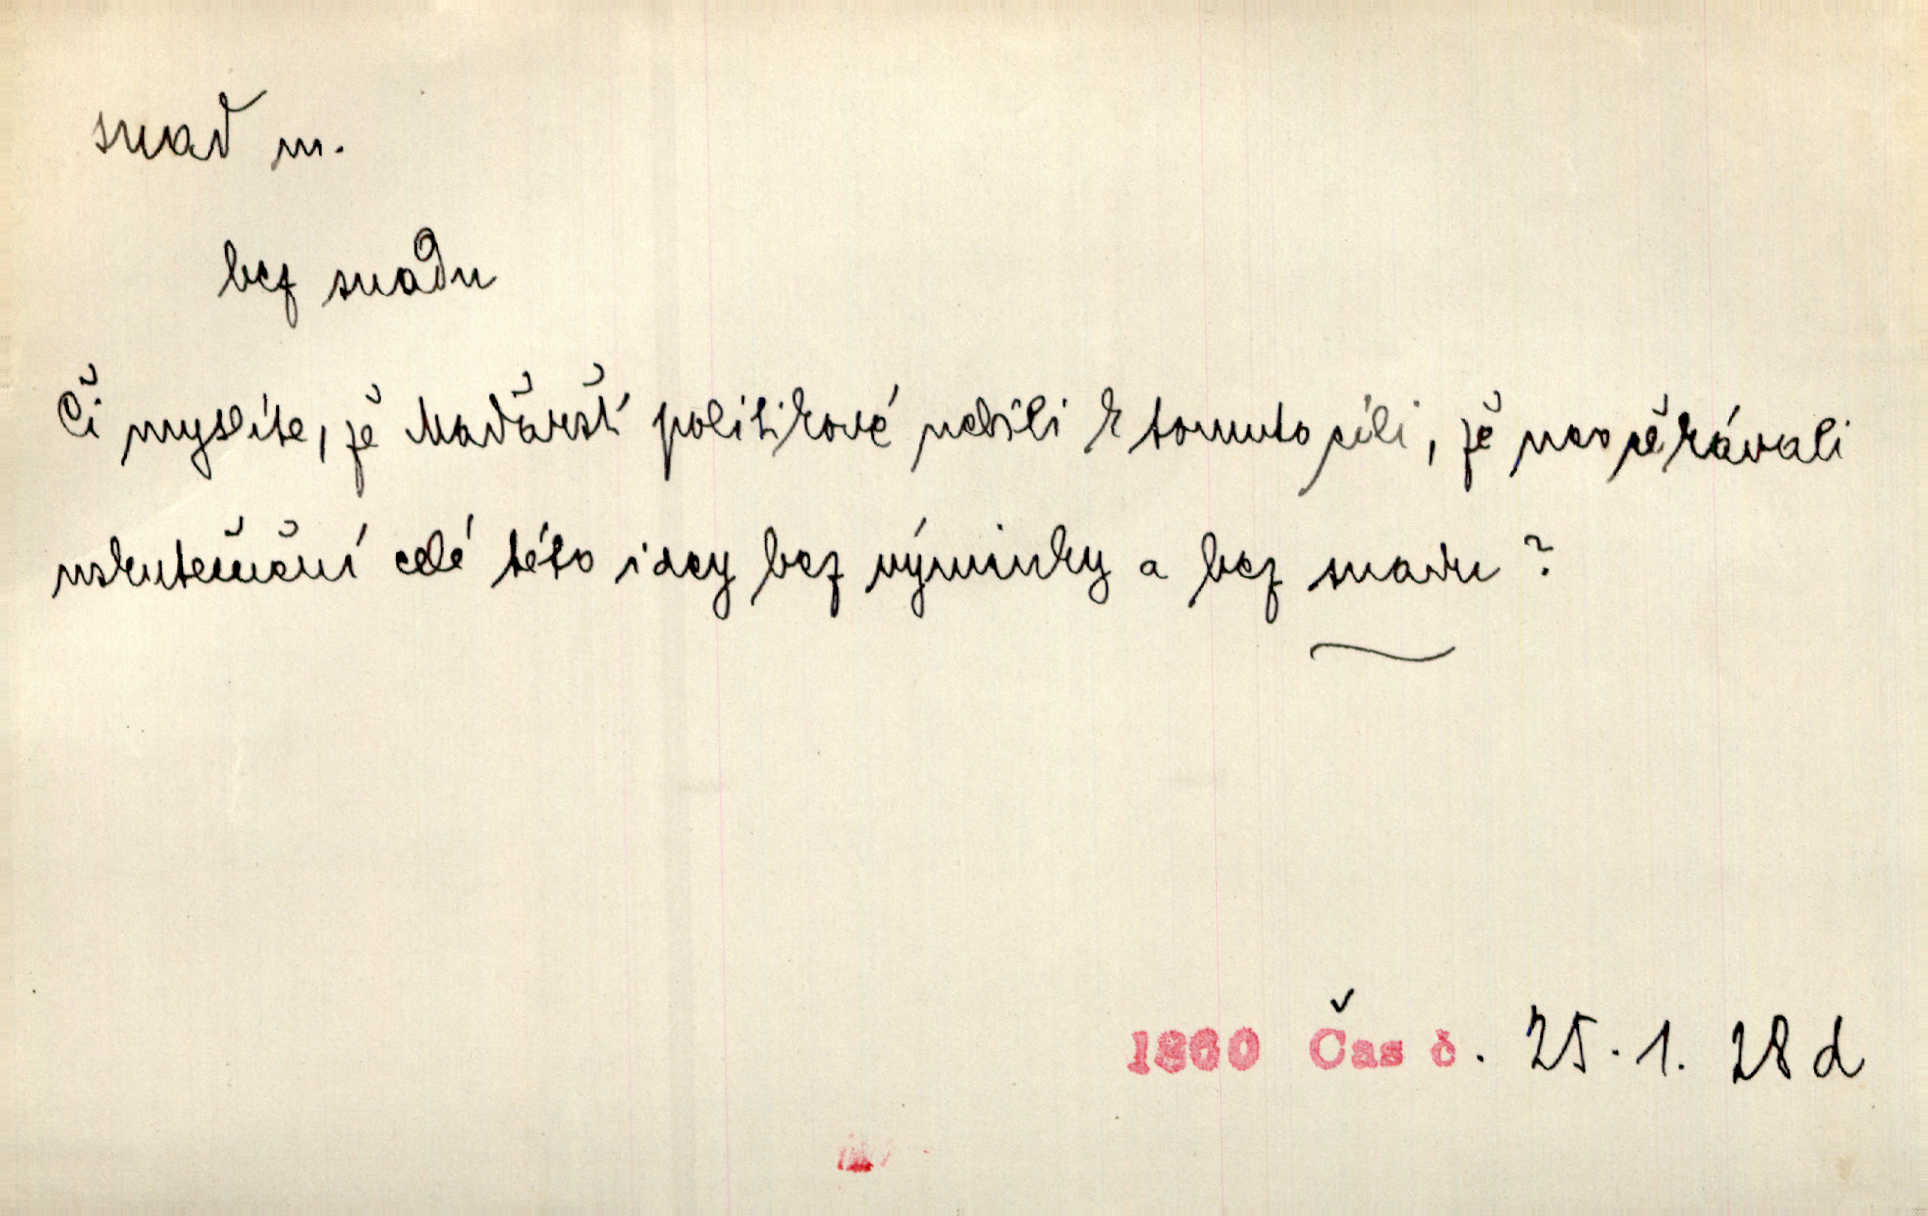 snad m.
bez snadu
Či myslíte, že Maďařští politikové nebili k tomuto cíli, že neočekávali
uskutečnění celé této idey bez výminky a bez snadu?
1860 Čas č. 25. 1. 28 d